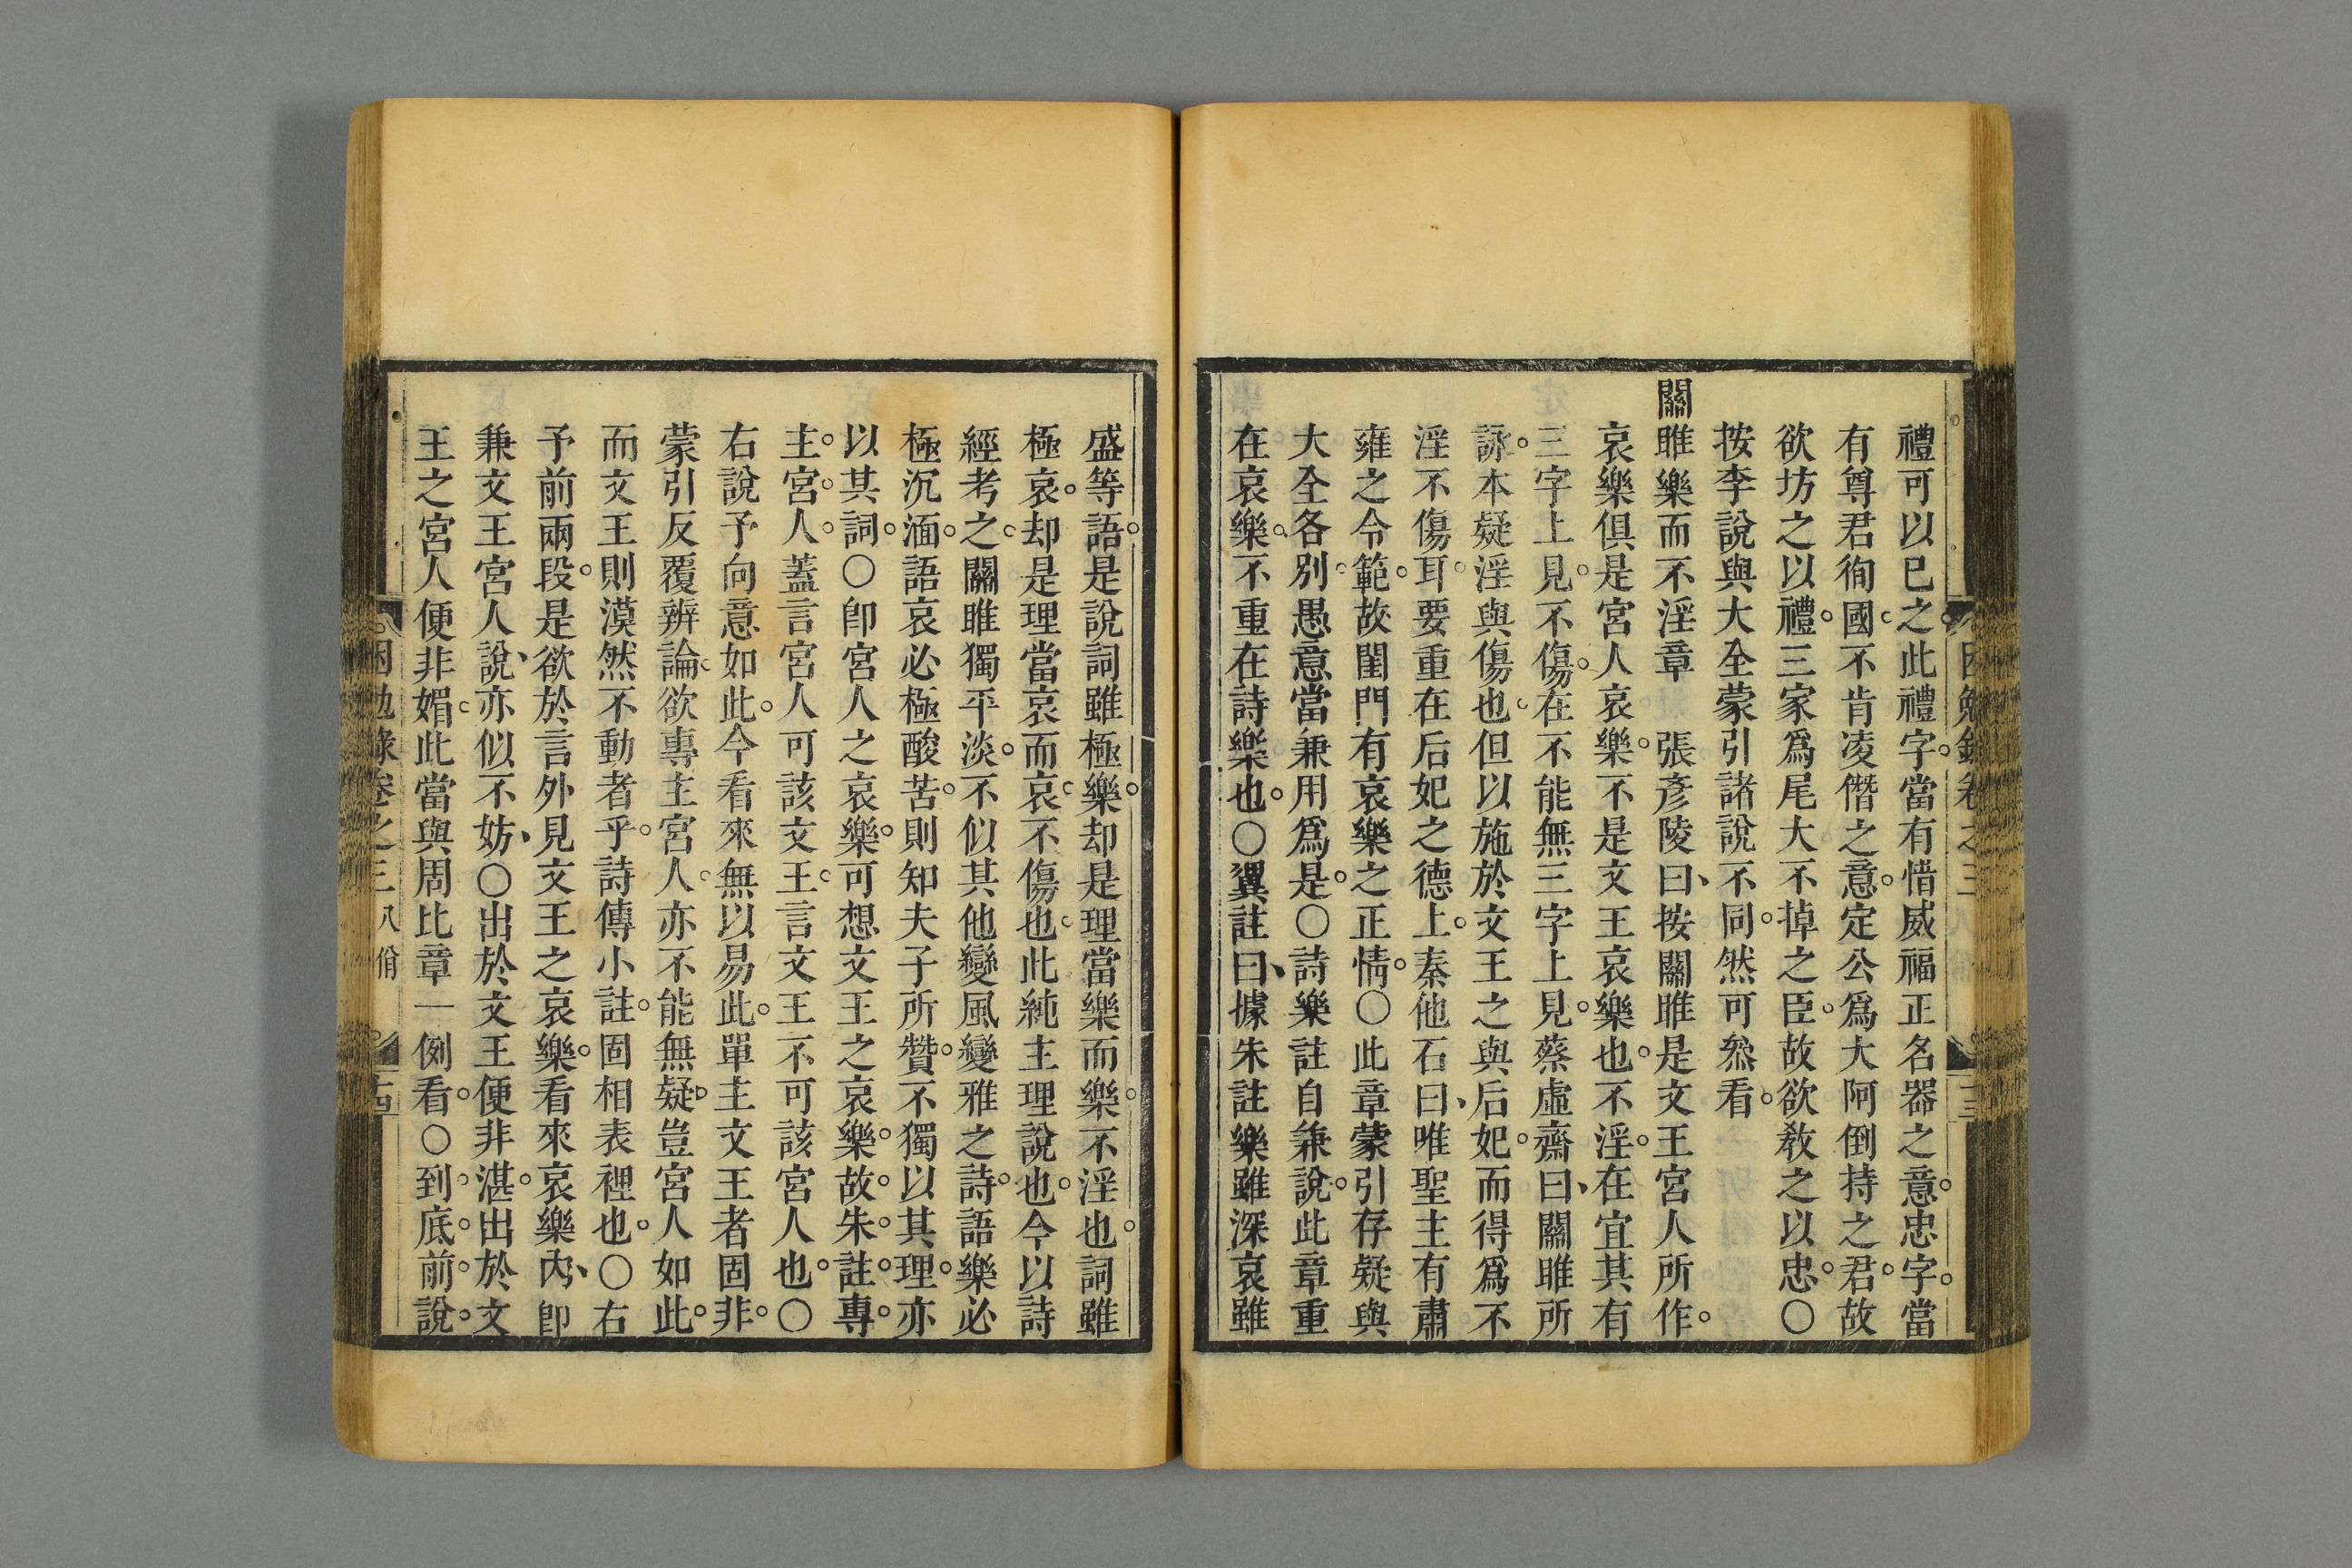 禮可以已之。此禮字。當有惜威福正名器之意。忠字。當
有尊君徇國。不肯凌僭之意。定公爲大阿倒持之君。故
欲坊之以禮。三家爲尾大不掉之臣。故欲敎之以忠。〇
按李說與大全蒙引諸說不同。然可叅看。
關雎樂而不淫章　張彥陵曰、按關雎是文王宮人所作。
哀樂俱是宮人哀樂。不是文王哀樂也。不淫。在宜其有
三字上見。不傷。在不能無三字上見。蔡虛齋曰、關雎所
詠。本疑淫與傷也。但以施於文王之與后妃。而得爲不
淫不傷耳。要重在后妃之德上。秦他石曰、唯聖主有肅
雍之令範。故閨門有哀樂之正情。〇此章蒙引存疑與
大全各別。愚意當兼用爲是。〇詩樂註自兼說。此章重
在哀樂。不重在詩樂也。〇翼註曰、據朱註樂雖深哀雖
盛等語。是說詞雖極樂。却是理當樂而樂。不淫也。詞雖
極哀。却是理當哀而哀。不傷也。此純主理說也。今以詩
經考之。關雎獨平淡。不似其他變風變雅之詩。語樂必
極沉湎。語哀必極酸苦。則知夫子所贊。不獨以其理。亦
以其詞。〇卽宮人之哀樂。可想文王之哀樂。故朱註專
主宮人。蓋言宮人可該文王。言文王不可該宮人也。〇
右說予向意如此。今看來無以易此。單主文王者固非。
蒙引反覆辨論。欲專主宮人。亦不能無疑。豈宮人如此。
而文王則漠然不動者乎。詩傳小註。固相表裡也。〇右
予前兩段。是欲於言外見文王之哀樂。看來哀樂內、卽
兼文王宮人說、亦似不妨、〇出於文王便非湛。出於文
王之宮人便非媚。此當與周比章一例看。〇到底前說。
困勉錄卷之三 八佾 十四